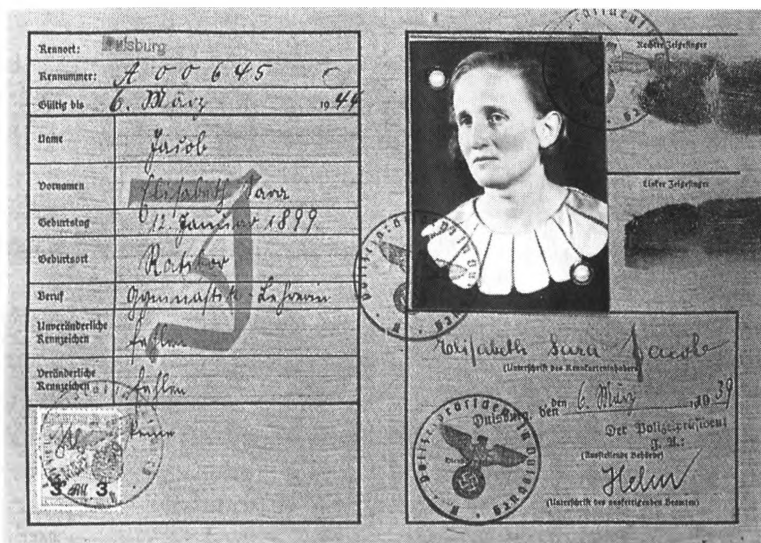 Kennort: Duisburg
Kennummer: A 00645
Gültig bis 6. März 1944
Name Jacob
Vornamen Elisabeth Sara
Geburtstag 12. Januar 1899
Geburtsort Ratibor
Beruf Gymnastik-Lehrerin
Unveränderliche Kennzeichen fehlen
Veränderliche Kennzeichen fehlen
keine
3 RM 3
Rechter Zeigefinger
Linker Zeigefinger
Elisabeth Sara Jacob
(Unterschrift des Kennkarteninhabers)
Duisburg, den 6. März 1939
Der Polizeipräsident
J. A.:
(Ausstellende Behörde)
Helm
(Unterschrift des ausfertigenden Beamten)
Polizeipräsident in Duisburg